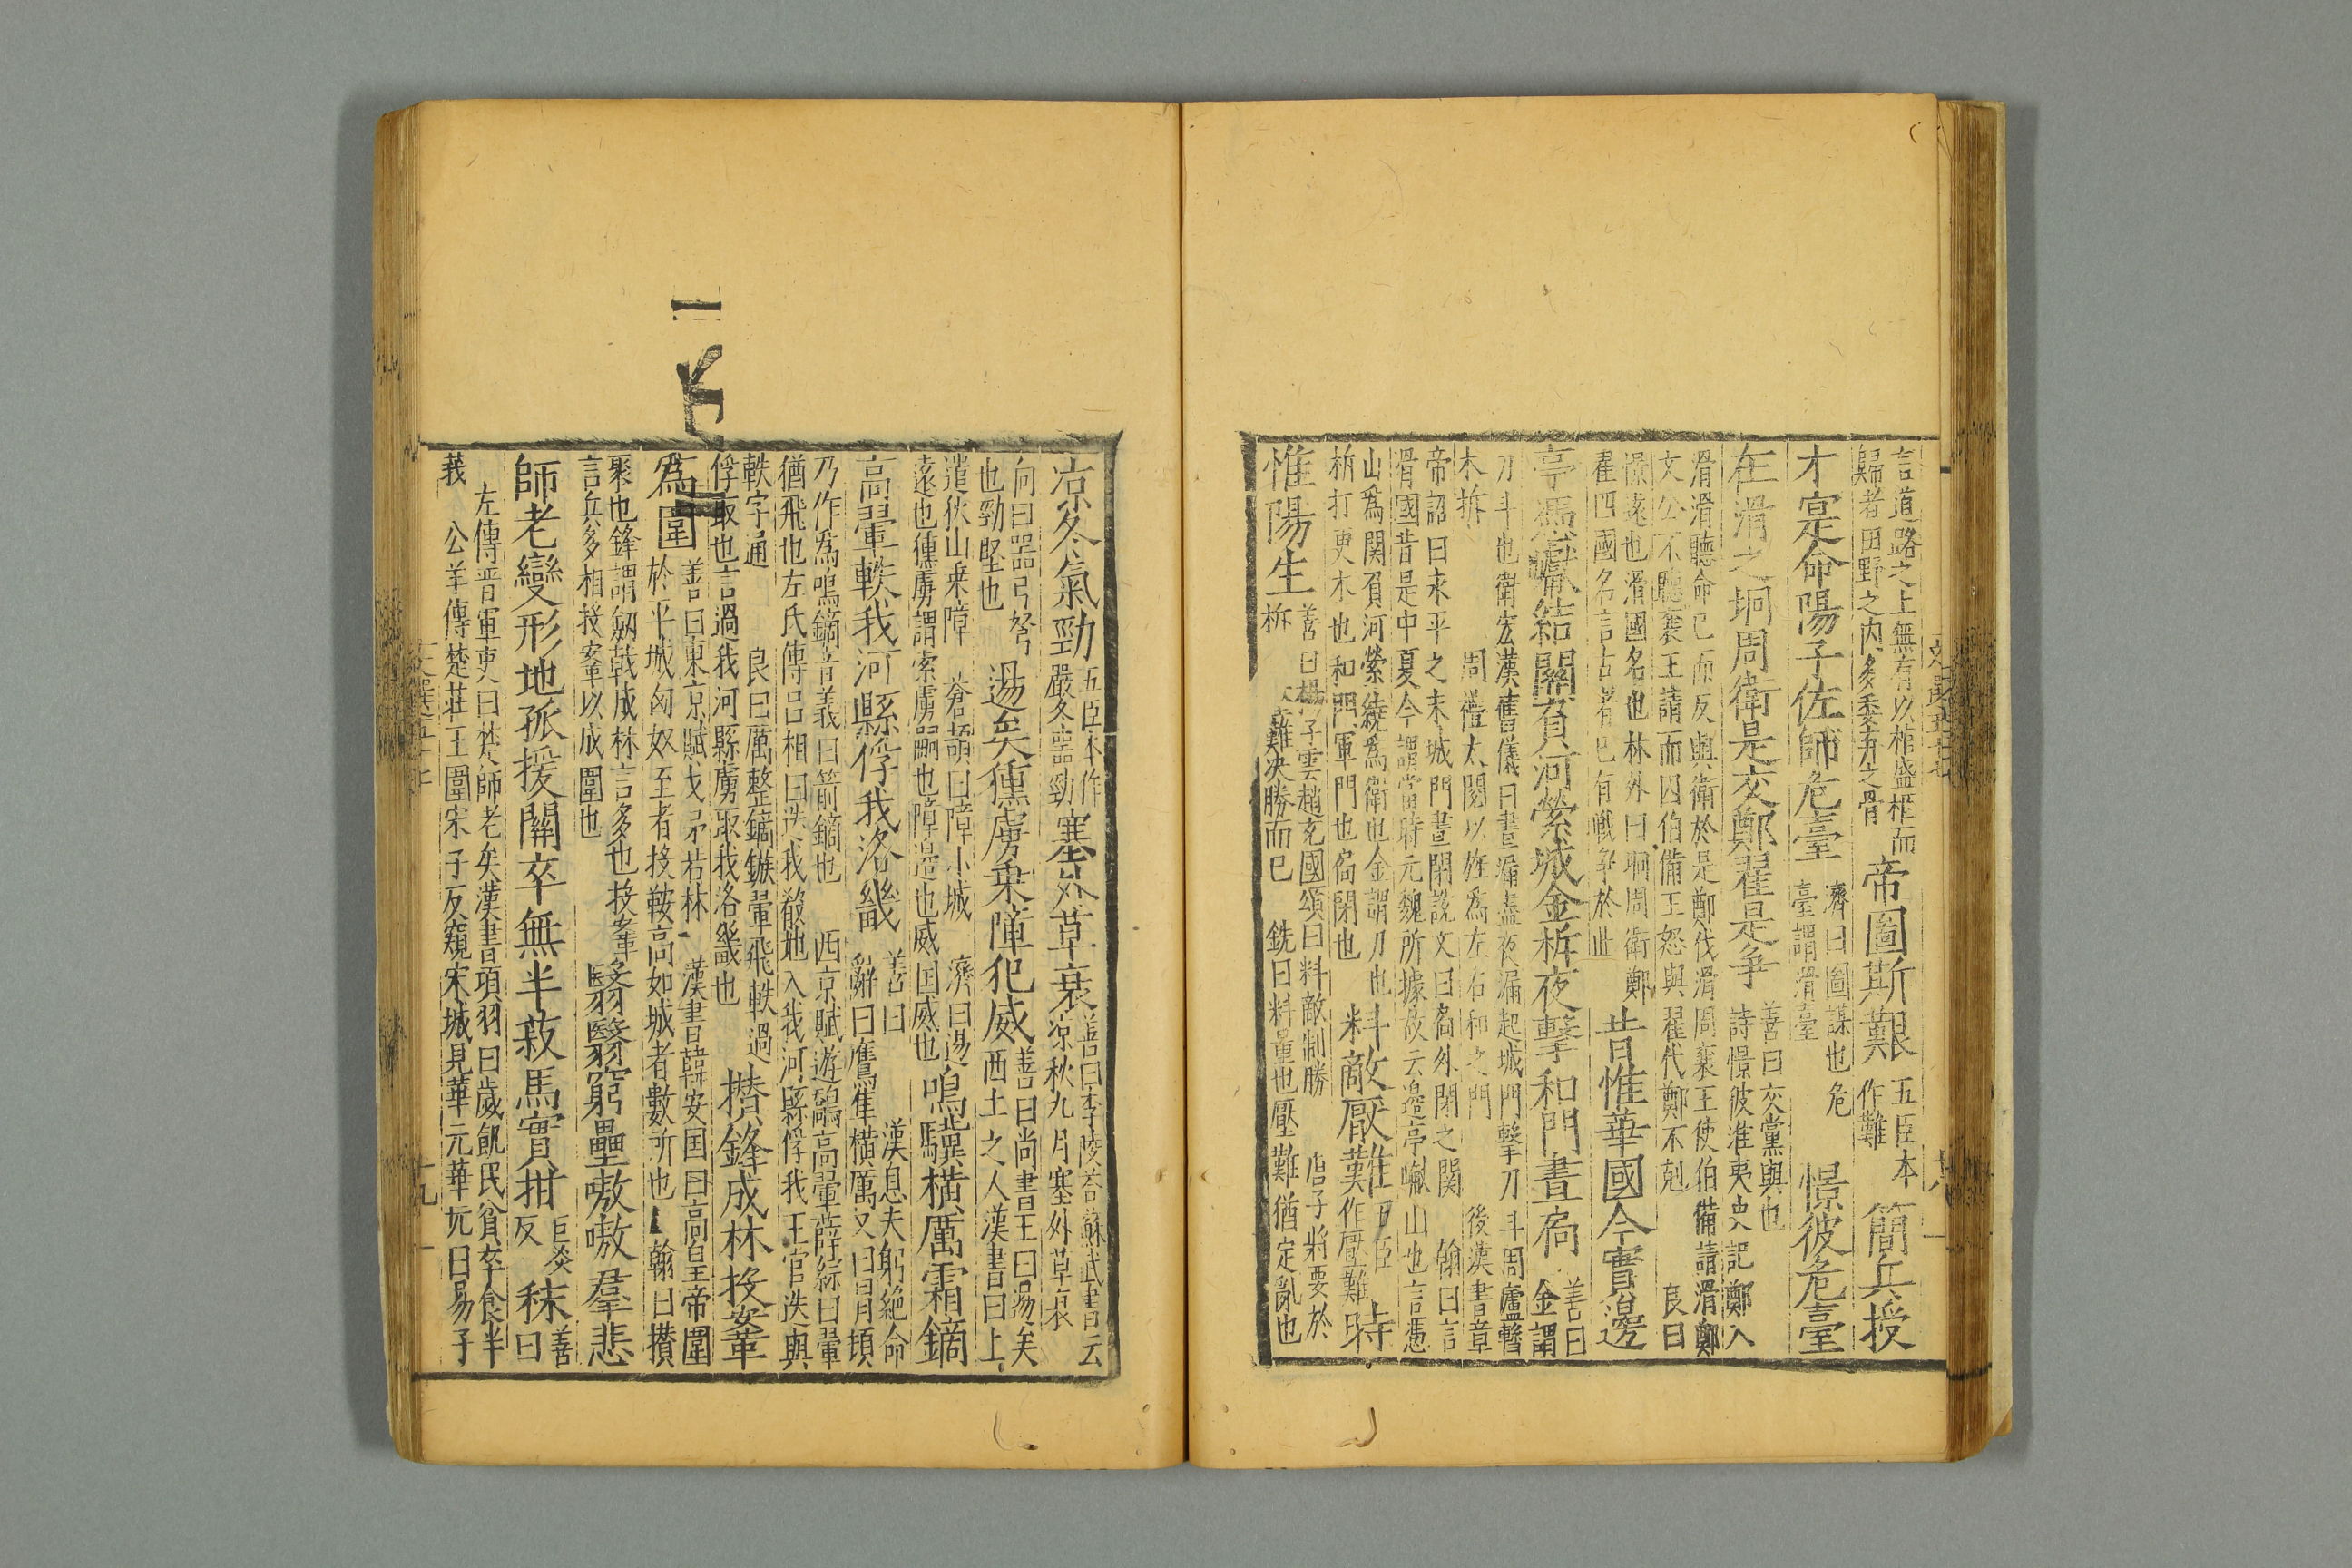 言道路之上無有以棺盛柩而
歸者田野之內多委弃之骨
帝圖斯艱
五臣本
作難
簡兵授
才寔命陽子佐師危臺
濟曰圖謀也危
臺謂滑臺
憬彼危臺
在滑之坰周衛是交鄭翟是爭
善曰交黨與也
詩憬彼淮夷史記鄭入
滑滑聽命已而反與衛於是鄭伐滑周襄王使伯備請滑鄭
文公不聽襄王請而囚伯備王怒與翟伐鄭不剋
良曰
憬遠也滑國名也林外曰坰周衛鄭
翟四國名言古者已有戰爭於此
昔惟華國今實邊
亭馮巘結關負河縈城金柝夜擊和門晝扃
善曰
金謂
刀斗也衛宏漢舊儀曰晝漏盡夜漏起城門擊刀斗周廬擊
木柝
周禮大閱以旌為左右和之門
後漢書章
帝詔曰永平之末城門晝閉說文曰扃外閉之關
翰曰言
滑國昔是中夏今謂當時元魏所據故云邊亭巘山也言憑
山為關負河縈繞為衛也金謂刀也
柝打更木也和門軍門也扃閉也
料敵厭難
五臣
作壓難
時
惟陽生
善曰楊子雲趙充國頌曰料敵制勝
唐子將要於
難決勝而已
銑曰料量也壓難猶定亂也
涼冬氣勁
五臣本作
嚴冬壼勁
塞外草衰
善曰李陵荅蘇武書云
涼秋九月塞外草衰
向曰噐弓弩
也勁堅也
逷矣獯虜乗障犯威
善曰尚書王曰逷矣
西土之人漢書曰上
遣狄山乗障
蒼頡曰障小城
濟曰逷
遠也獯虜謂索虜嗣也障邊也威国威也
鳴驥橫厲霜鏑
高翬軼我河縣俘我洛畿
善曰
漢息夫躬絕命
辭曰鷹隼橫厲又曰冒頓
乃作為鳴鏑音義曰箭鏑也
西京賦遊鷮高翬薛綜曰翬
猶飛也左氏傳吕相曰迭我殽地入我河縣俘我王官迭與
軼字通
良曰厲整鏑鏃翬飛軼過
俘取也言過我河縣虜取我洛畿也
攢鋒成林投鞌
為圍
善曰東京賦戈矛若林
漢書韓安国曰高皇帝圍
於平城匈奴至者投鞍高如城者數所也
翰曰攢
聚也鋒謂劔戟成林言多也投鞌
言兵多相投鞌以成圍也
翳翳窮壘嗷嗷羣悲
師老變形地孤援闊卒無半菽馬實拑
巨炎
反
秣
善
曰
左傳晋軍吏曰楚師老矣漢書項羽曰歲飢民貧卒食半
菽
公羊傳楚莊王圍宋子反窺宋城見華元華元曰易子